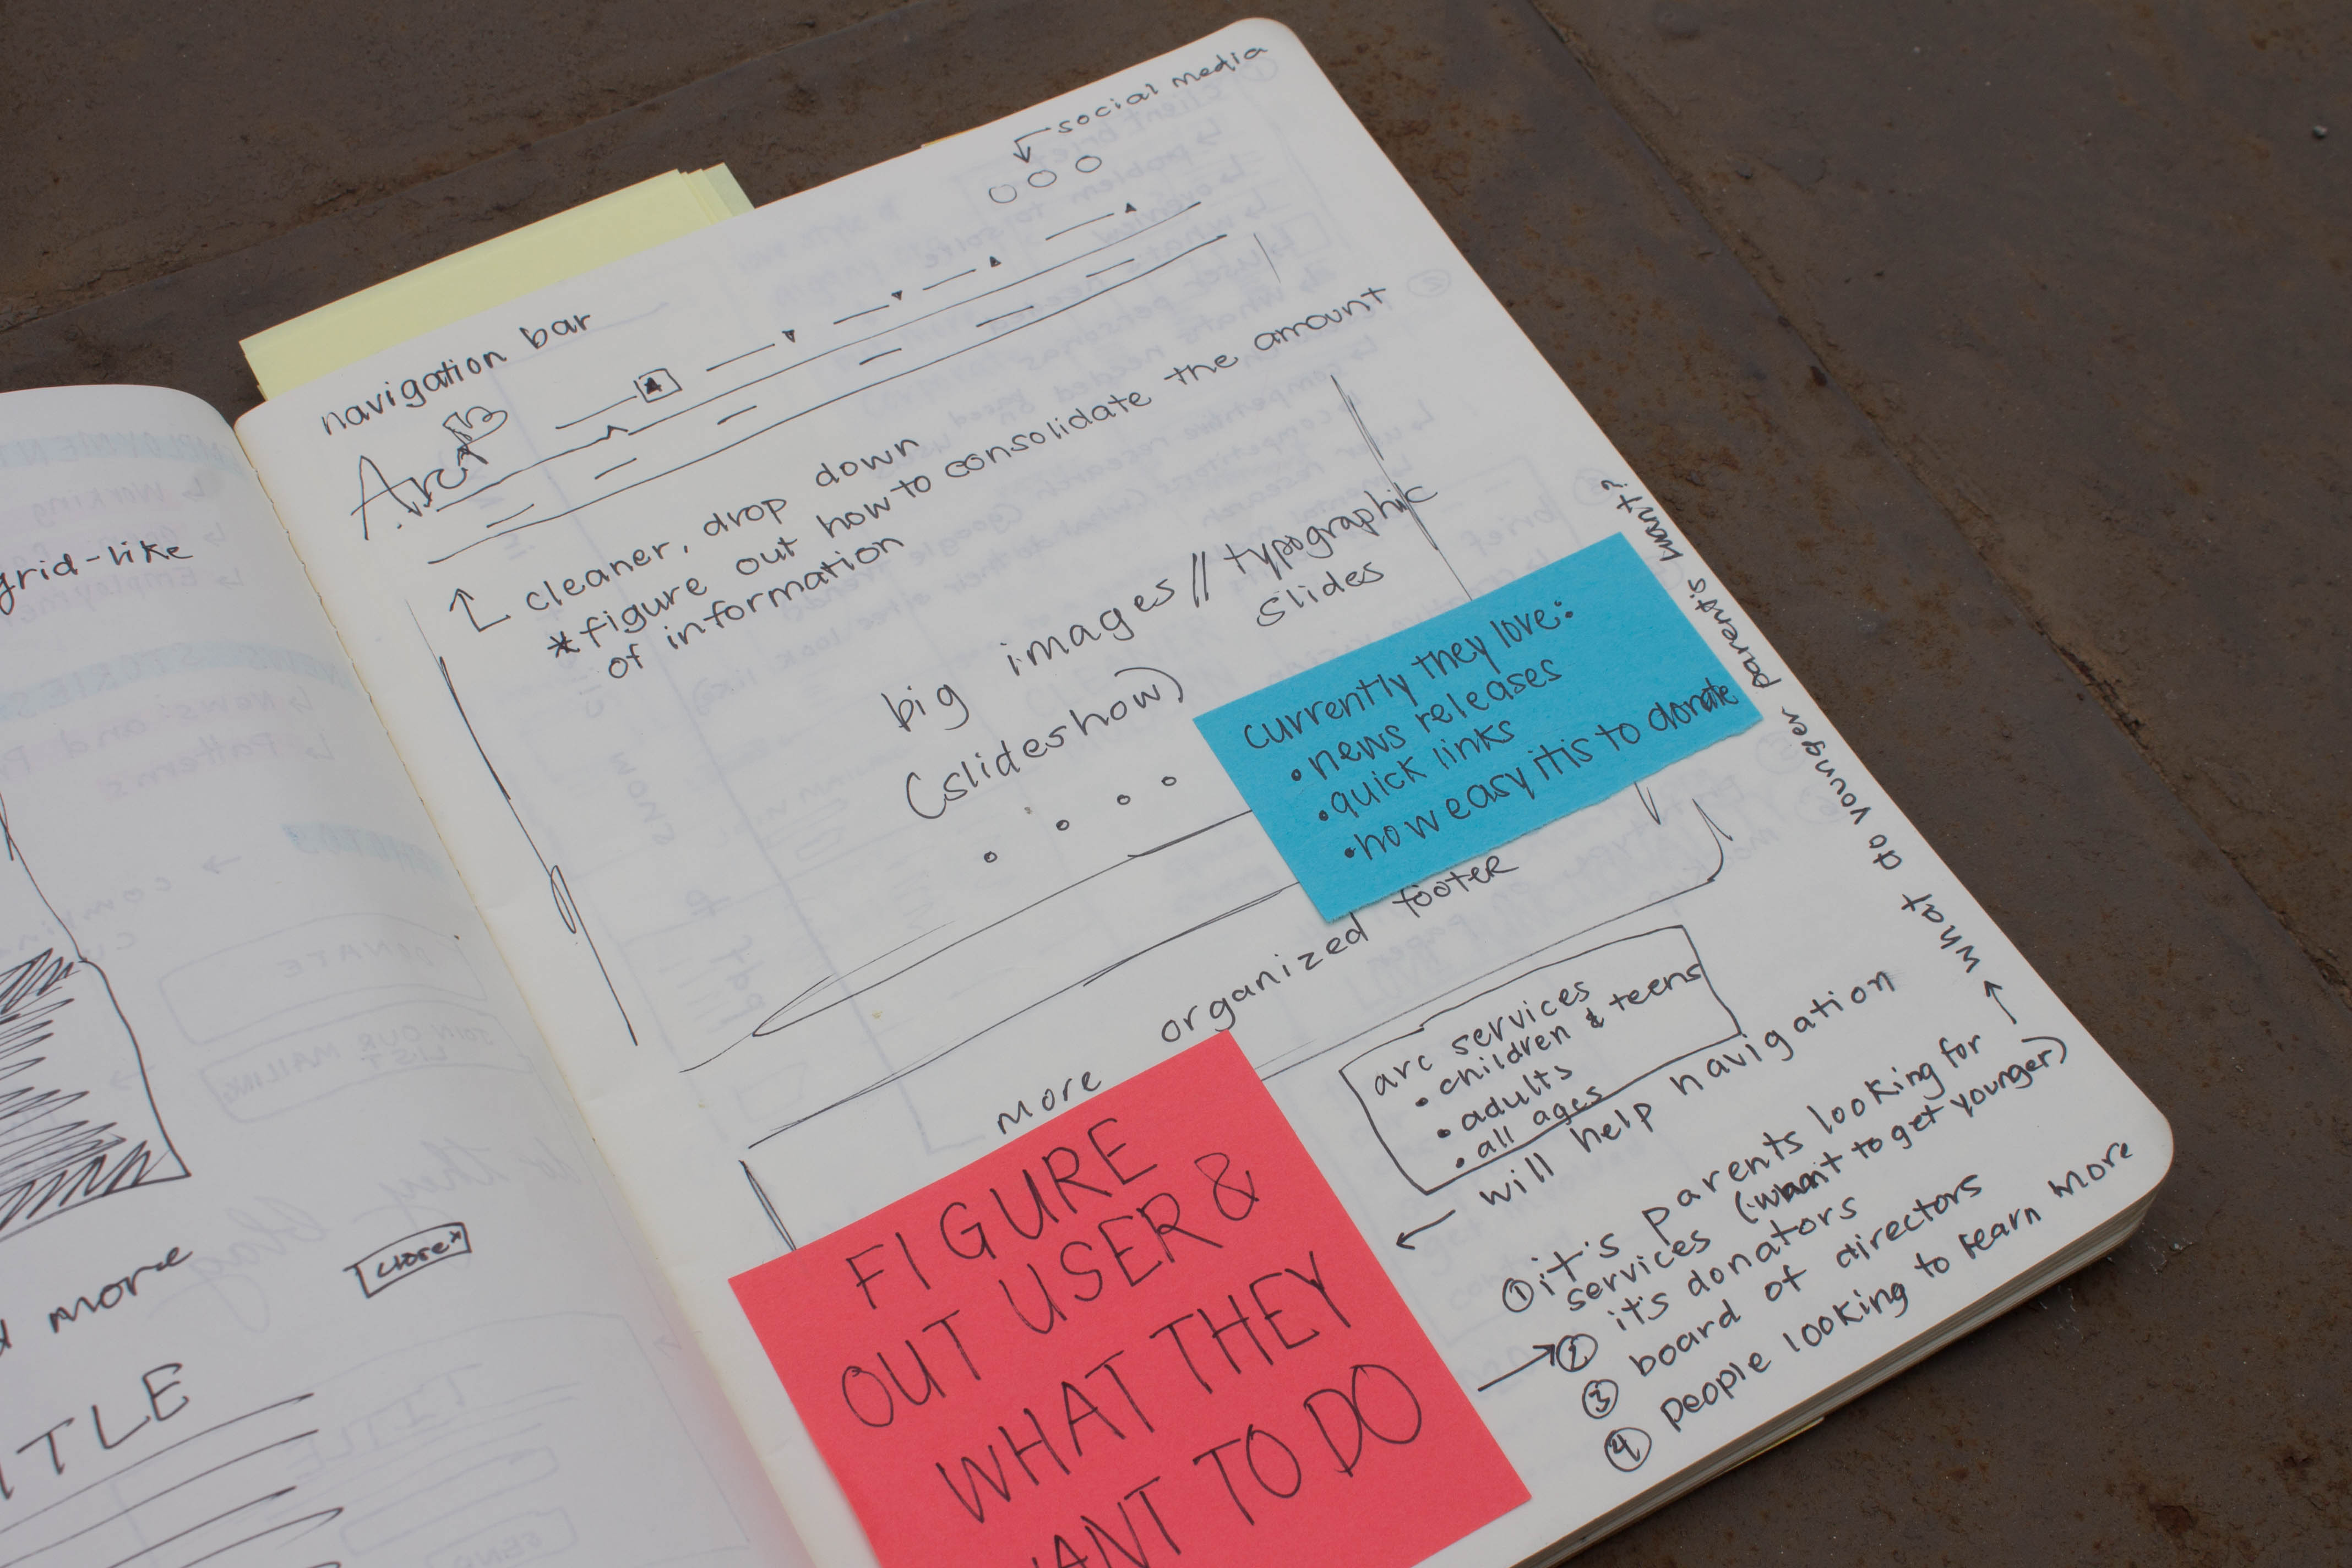 grid-like
more
TLE
close x
social media
navigation bar
Arc
cleaner, drop down
*figure out how to consolidate the amount
of information
big images // typographic
slides
(slideshow)
currently they love:
• news releases
• quick links
• how easy it is to donate
what do younger parents want?
more organized footer
arc services
• children & teens
• adults
• all ages
will help navigation
FIGURE
OUT USER &
WHAT THEY
WANT TO DO
① it's parents looking for
services (want to get younger)
② it's donators
③ board of directors
④ people looking to learn more